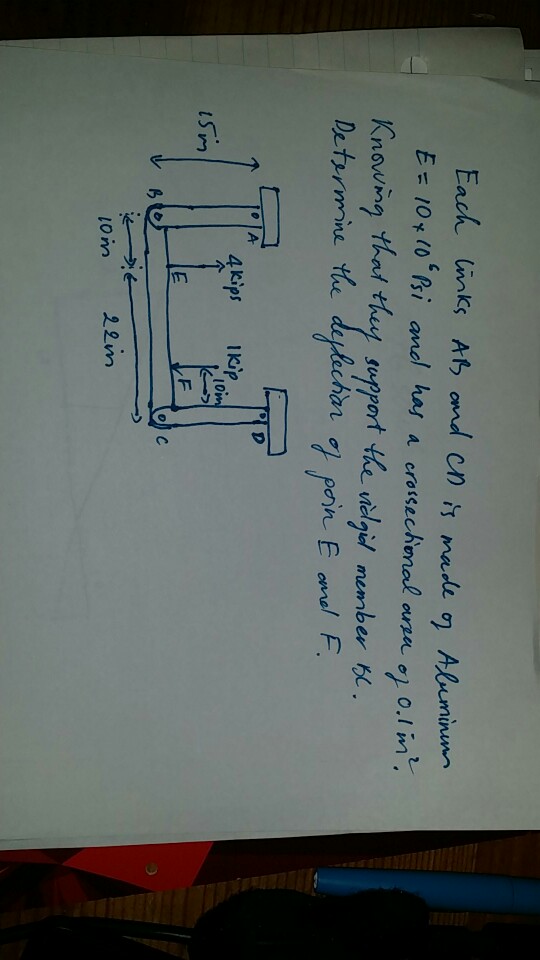 Each links AB and CD is made of Aluminum
E = 10 x 10⁶ Psi and has a crossectional area of 0.1 in².
Knowing that they support the ridgid member BC.
Determine the deflection of poin E and F.
A
D
4 Kips
1 Kip
10in
15in
E
F
B
C
10in
22in